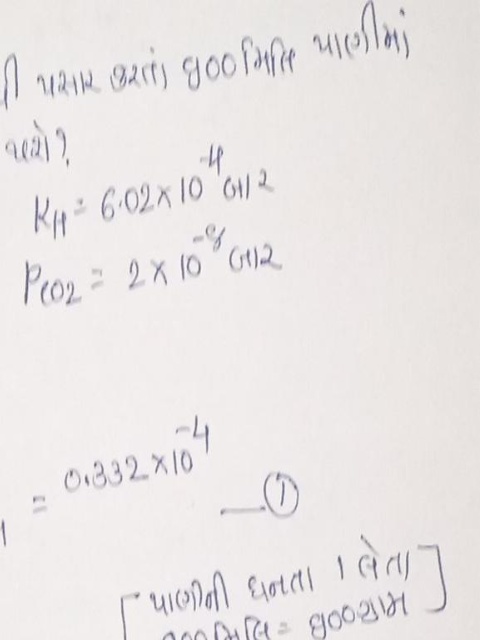 પસાર કરતાં ૪૦૦ મિલિ પાણીમાં
થશે?
KH = 6.02 × 10⁻⁴ બાર
PCO2 = 2 × 10⁻⁸ બાર
= 0.332 × 10⁻⁴ — ①
[પાણીની ઘનતા 1 લેતા
મિલિ = ૪૦૦ ગ્રામ]